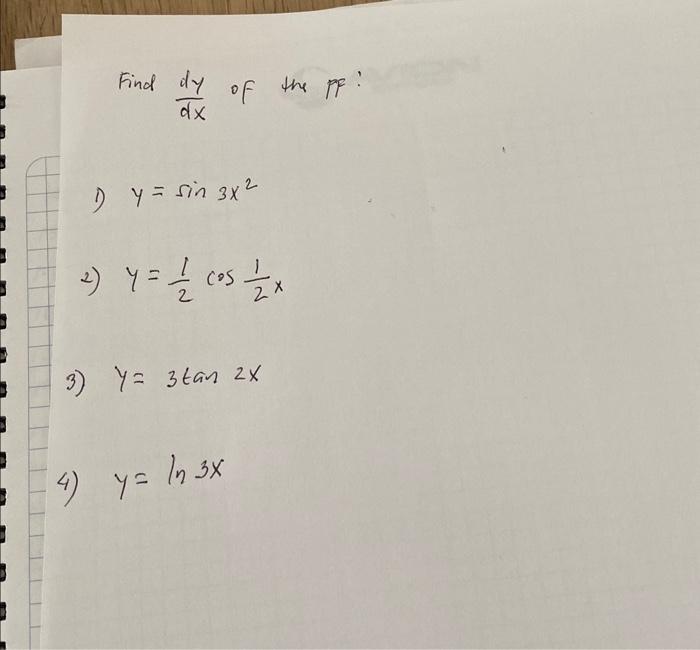 Find dy/dx of the ff:
1) y = sin 3x²
2) y = 1/2 cos 1/2 x
3) y = 3tan 2x
4) y = ln 3x